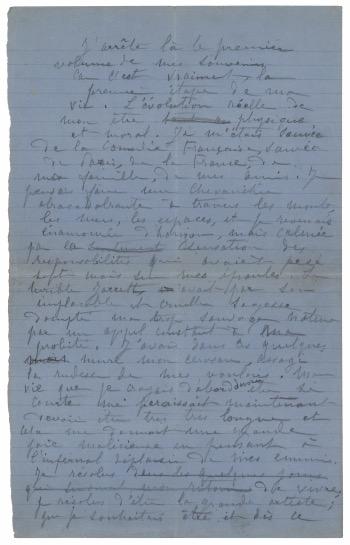 J'arrête là le premier
volume de mes souvenirs
car c'est vraiment la
première étape de ma
vie. L'évolution réelle de
mon être physique
et moral. Je m'étais sauvée
de la Comédie Française, sauvée
de Paris, de la France, de
ma famille, de mes amis. Je
pensais faire une chevauchée
abracadabrante à travers les monts,
les mers, les espaces, et je revenais
énamourée d'horizon, mais calmée
par la sensation des
responsabilités qui avaient pesé
sept mois sur mes épaules. Le
terrible Jarrett avait par son
implacable et cruelle sagesse
dompté ma trop sauvage nature
par un appel constant à ma
probité. J'avais dans ces quelques
mois muri mon cerveau, assagi
la rudesse de mes vouloirs. Ma
vie que je croyais d'abord devoir être si
courte me paraissait maintenant
devoir être très très longue et
cela me donnait une grande
joie malicieuse en pensant à
l'infernal déplaisir de mes ennemis.
Je résolus de vivre,
je résolus d'être la grande artiste
que je souhaitais être et dès ce